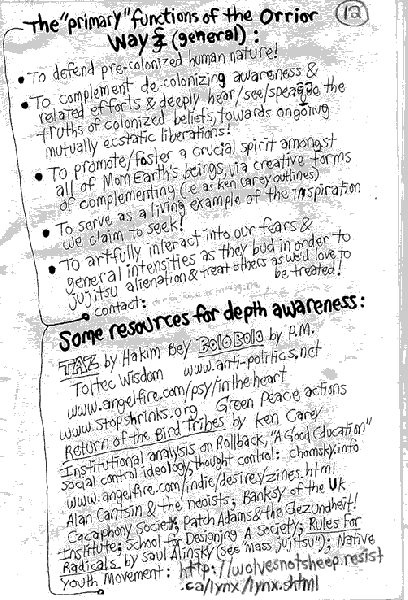 The "primary" functions of the Orrior
12
Way & (general):
• To defend pre-colonized human nature!
• To complement de-colonizing awareness &
related efforts & deeply hear/see/speak to the
truths of colonized beliefs, towards ongoing
mutually ecstatic liberations!
• To promote/foster a crucial spirit amongst
all of Mom Earth's beings, via creative forms
of complementing (i.e. a Ken Carey outlines)
• To serve as a living example of the inspiration
we claim to seek!
• To artfully interact into our fears &
general intensities as they bud in order to
jujitsu alienation & treat others as we'd love to
be treated!
contact:
Some resources for depth awareness:
TAZ by Hakim Bey BOLO BOLO by P.M.
Toltec Wisdom www.anti-politics.net
www.angelfire.com/psy/intheheart
www.stopshrinks.org Green Peace actions
Return of the Bird Tribes by Ken Carey
Institutional analysis on Rollback, "A Good Education"
social control ideology, thought control: chomsky.info
www.angelfire.com/indie/desirev/zines.html
Alan Cantsin & the neoists; Banksy of the UK
Cacaphony society, Patch Adams & the Gezundheit!
Institute; School for Designing A society; Rules For
Radicals by Saul Alinsky (see Mass jujitsu"); Native
Youth Movement: http://wolvesnotsheep.resist
.ca/lynx/lynx.shtml